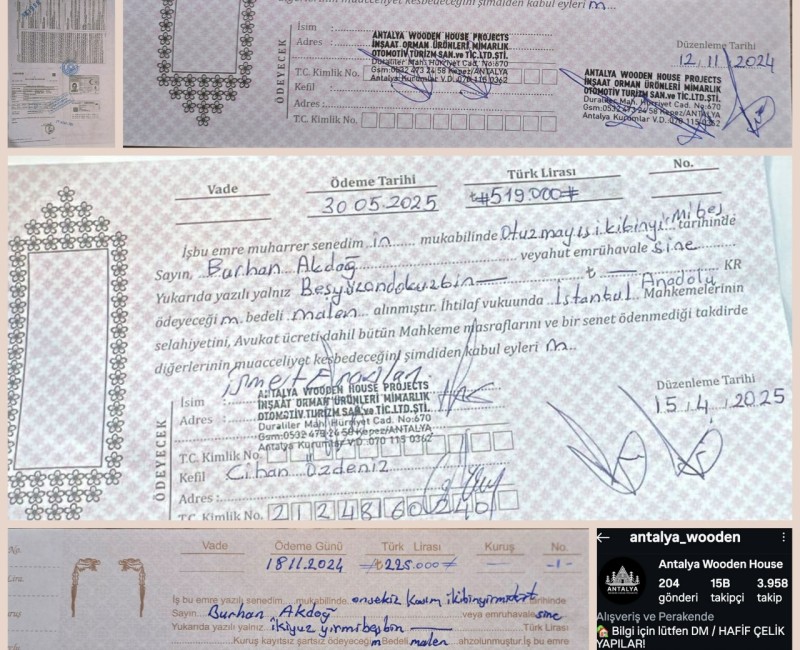 diğerlerinin muacceliyet kesbedeceğini şimdiden kabul eyleri m...
ÖDEYECEK
İsim :
Adres :
T.C. Kimlik No.
Kefil
Adres:
T.C. Kimlik No.
ANTALYA WOODEN HOUSE PROJECTS
İNŞAAT ORMAN ÜRÜNLERİ MİMARLIK
OTOMOTİV TURİZM SAN.ve TİC.LTD.ŞTİ.
Duraliler Mah. Hürriyet Cad. No:670
Gsm:0532 473 24 58 Kepez/ANTALYA
Antalya Kurumlar V.D.:070 115 0362
Düzenleme Tarihi
12.11.2024
ANTALYA WOODEN HOUSE PROJECTS
İNŞAAT ORMAN ÜRÜNLERİ MİMARLIK
OTOMOTİV TURİZM SAN.ve TİC.LTD.ŞTİ.
Duraliler Mah. Hürriyet Cad. No:670
Gsm:0532 473 24 58 Kepez/ANTALYA
Antalya Kurumlar V.D.:070 115 0362
Vade Ödeme Tarihi Türk Lirası No.
30 05 2025 ₺#519.000#
İşbu emre muharrer senedim in mukabilinde Otuzmayısikibinyirmibeş tarihinde
Sayın, Burhan Akdoğ veyahut emrühavale sine
Yukarıda yazılı yalnız Beşyüzondokuzbin— ₺ — KR
ödeyeceği m. bedeli malen alınmıştır. İhtilaf vukuunda İstanbul Anadolu Mahkemelerinin
selahiyetini, Avukat ücreti dahil bütün Mahkeme masraflarını ve bir senet ödenmediği takdirde
diğerlerinin muacceliyet kesbedeceğini şimdiden kabul eyleri m...
ÖDEYECEK
İsim :
Adres :
T.C. Kimlik No.
Kefil Cihan Özdeniz
Adres:
T.C. Kimlik No.
ANTALYA WOODEN HOUSE PROJECTS
İNŞAAT ORMAN ÜRÜNLERİ MİMARLIK
OTOMOTİV TURİZM SAN.ve TİC.LTD.ŞTİ.
Duraliler Mah. Hürriyet Cad. No:670
Gsm:0532 473 24 58 Kepez/ANTALYA
Antalya Kurumlar V.D.:070 115 0362
Düzenleme Tarihi
15.4.2025
No.
Lira.
Vade Ödeme Günü Türk Lirası Kuruş No.
18.11.2024 ₺225.000 — -1-
İş bu emre yazılı senedim mukabilinde onsekiz Kasım ikibinyirmidört tarihinde
Sayın Burhan Akdoğ veya emruhavale sine
Yukarıda yazılı yalnız ikiyüz yirmibeşbin — Türk Lirası
Kuruş kayıtsız şartsız ödeyeceğim Bedeli malen ahzolunmuştur.İş bu emre
antalya_wooden
Antalya Wooden House
204 15B 3.958
gönderi takipçi takip
ANTALYA
Alışveriş ve Perakende
🏡 Bilgi için lütfen DM / HAFİF ÇELİK
YAPILAR!